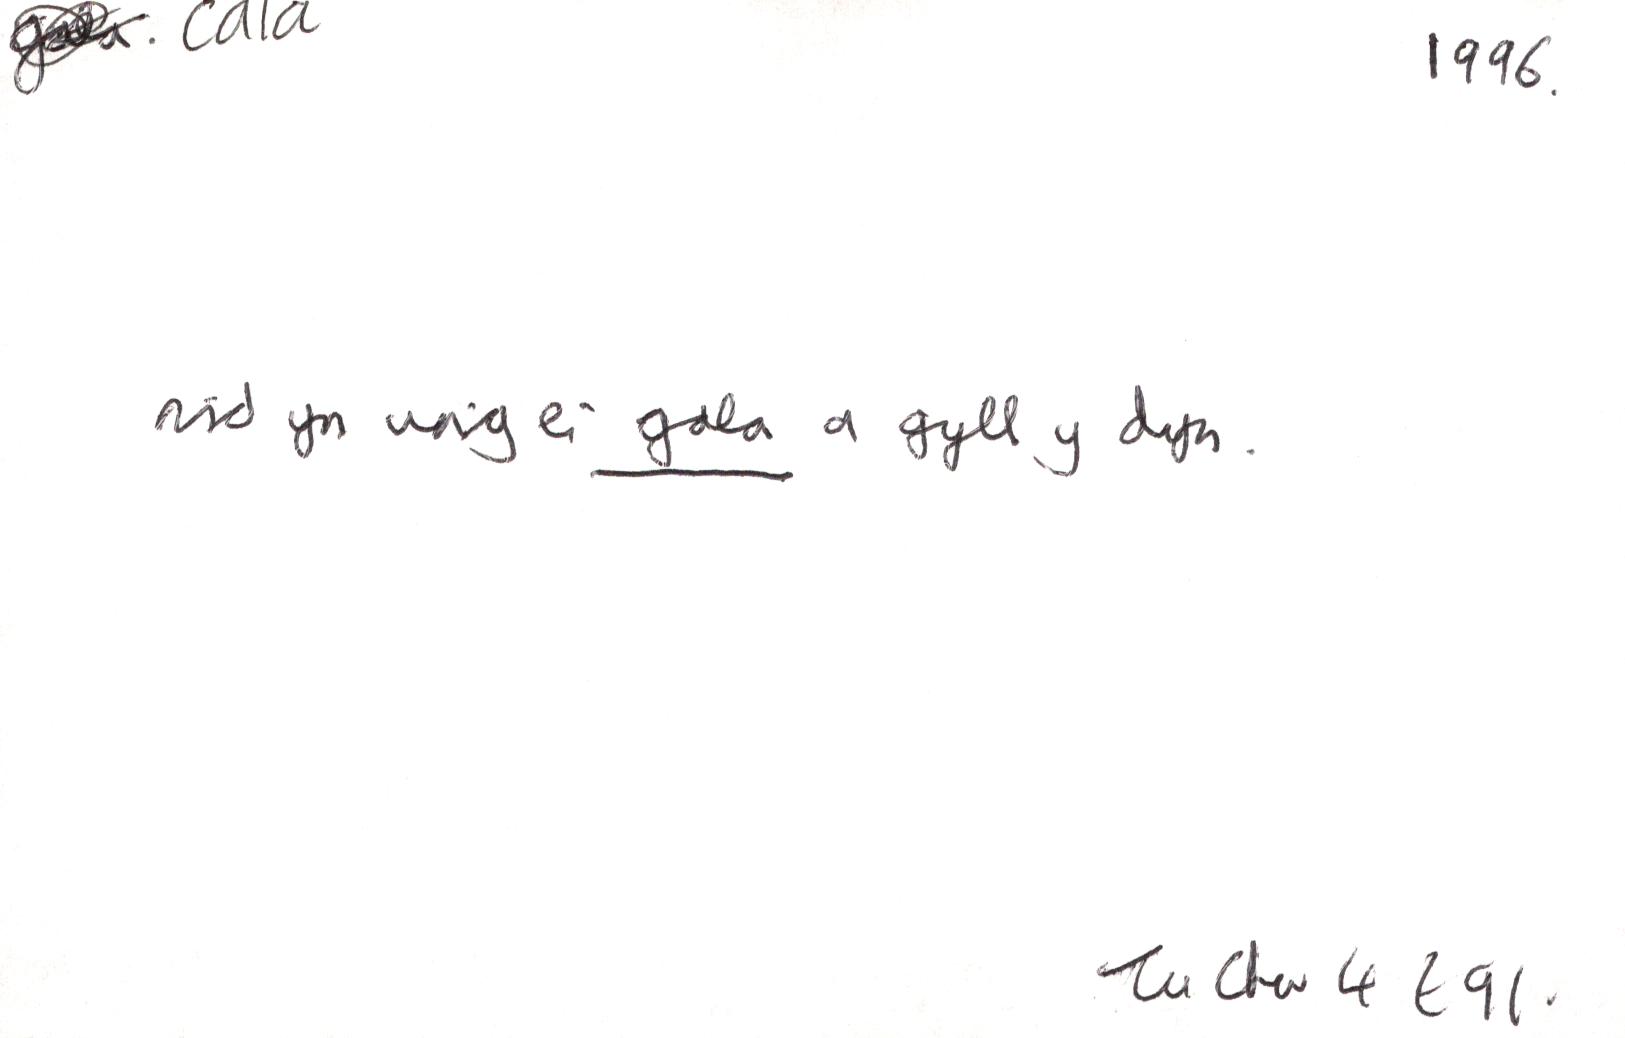 cala
1996.
nid yn unig ei gala a gyll y dyn.
Tu Chw 4 t 91.